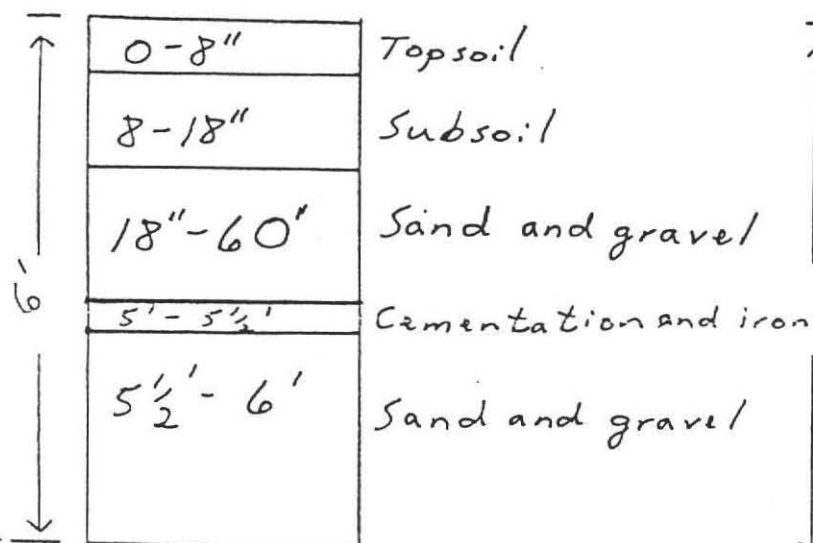 0-8" Topsoil
8-18" Subsoil
18"-60" Sand and gravel
5'-5½' Cementation and iron
5½'-6' Sand and gravel
6'